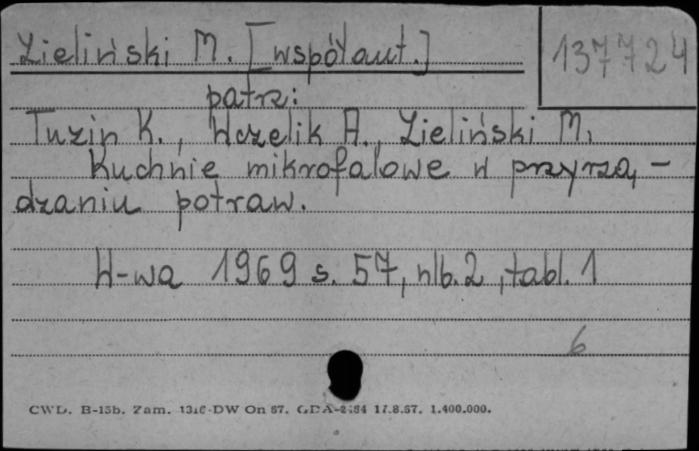 Zieliński M. [współaut.]
137724
patrz:
Tuzin K., Wczelik A., Zieliński M.
Kuchnie mikrofalowe w przyrzą-
dzaniu potraw.
W-wa 1969 s. 57, nlb. 2, tabl. 1
6
CWD. B-15b. Zam. DW On 67. 17.8.67. 1.400.000.